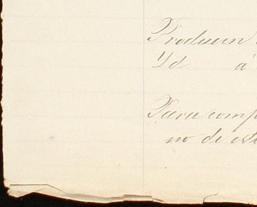 Producen
Yd á
Para comp
no de est